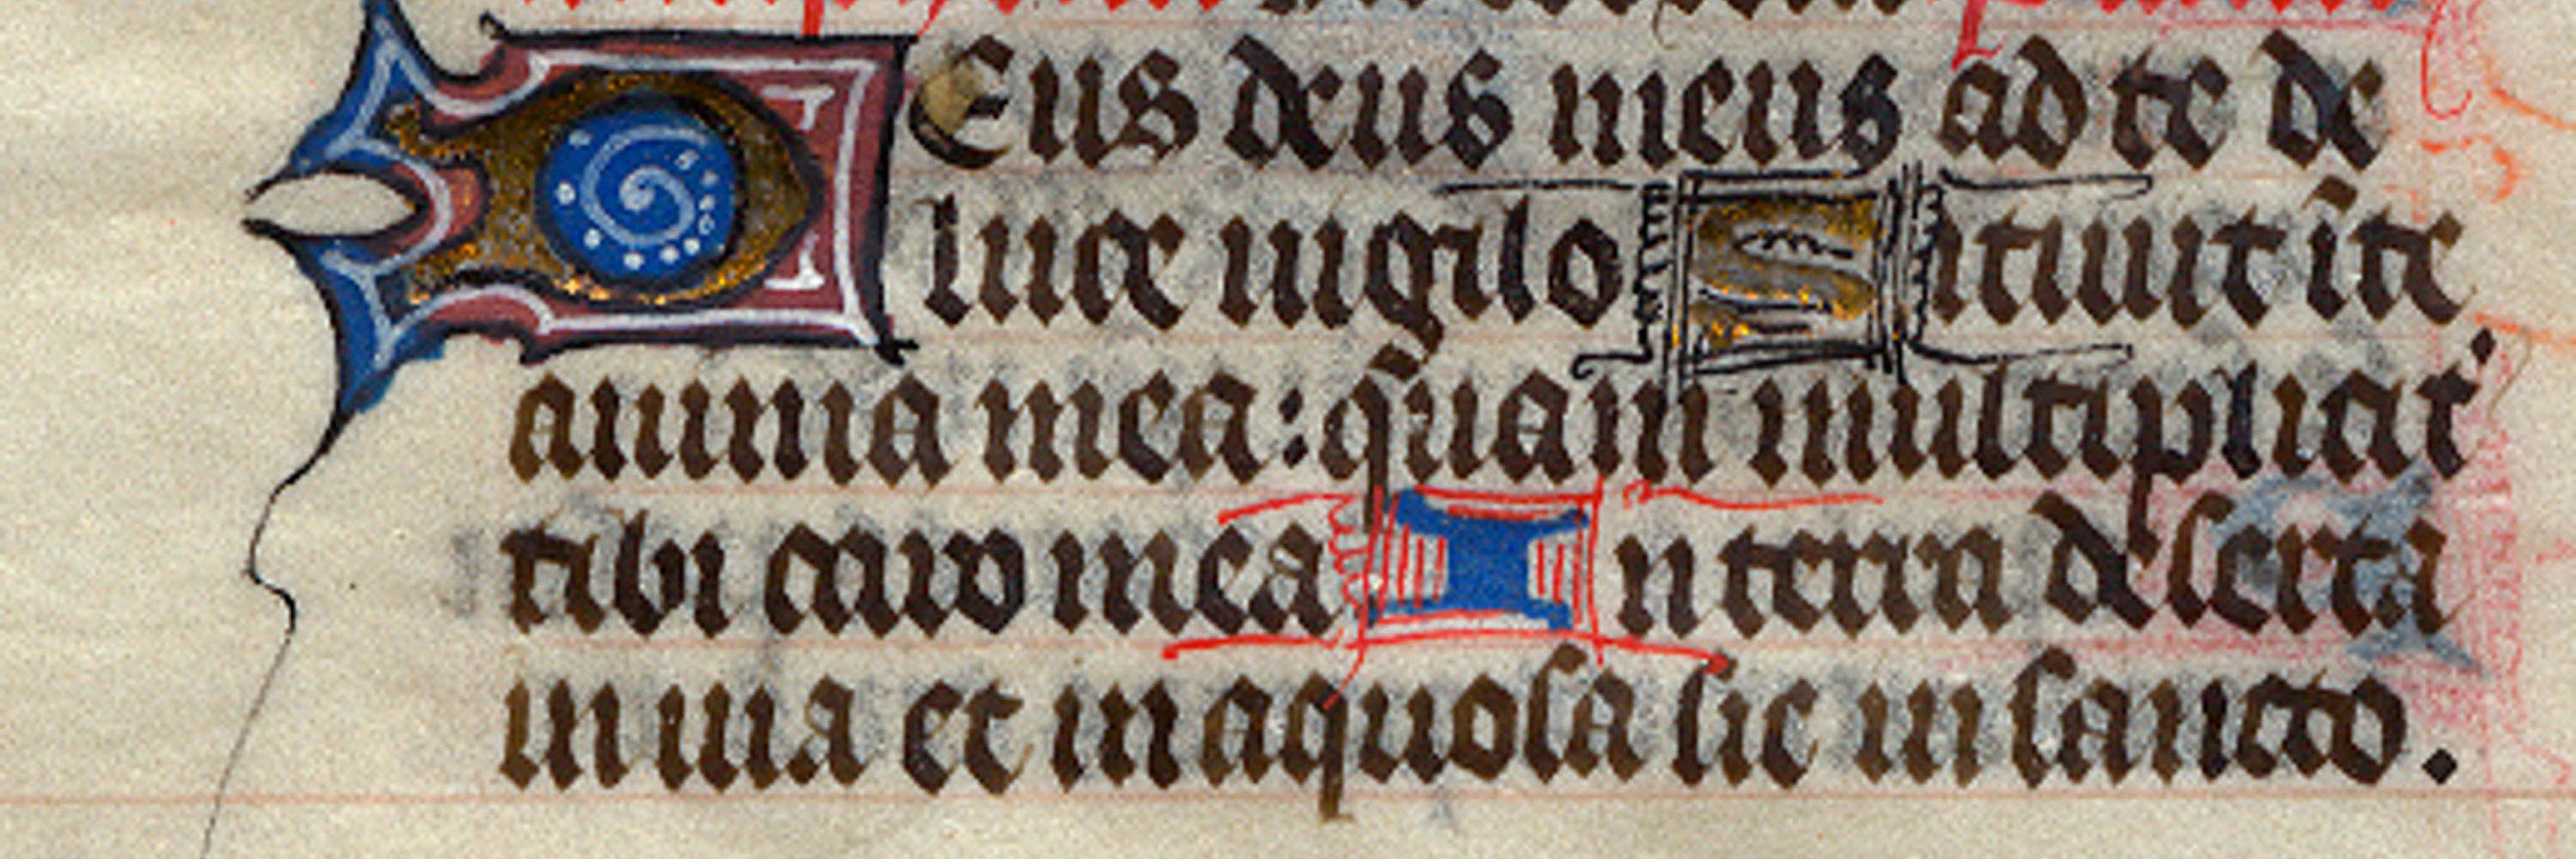 DEus deus meus ad te de
luce uigilo Sitiuit ī te
anima mea: quam multiplicit'
tibi caro mea In terra deserta
in uia et in aquosa sic in sancto.